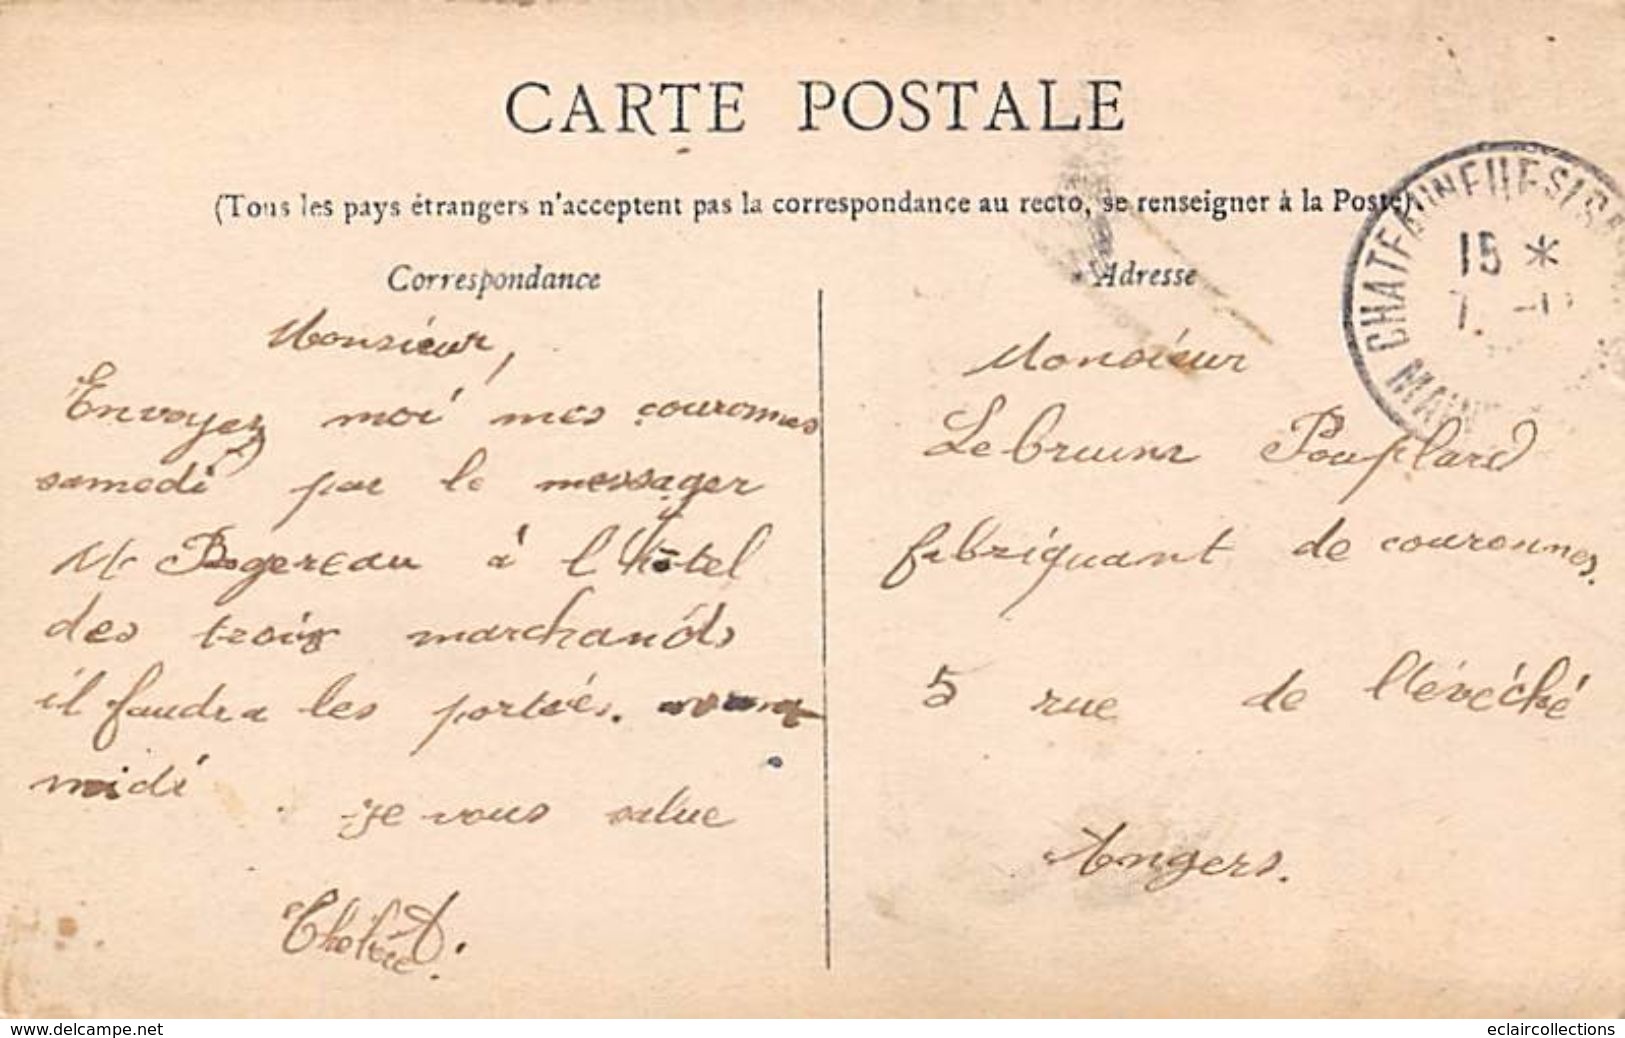 CARTE POSTALE
(Tous les pays étrangers n'acceptent pas la correspondance au recto, se renseigner à la Poste).
Correspondance
Monsieur,
Envoyez moi mes couronnes
samedi par le messager
Mr Bogereau à l'hôtel
des trois marchands
il faudra les portées.
midi
je vous salue
Adresse
Monsieur
Lebrun Pouplard
fabriquant de couronnes.
5 rue de l'évéché
Angers.
CHATEAUNEUF S/SA
15 *
MAIN
www.delcampe.net
eclaircollections